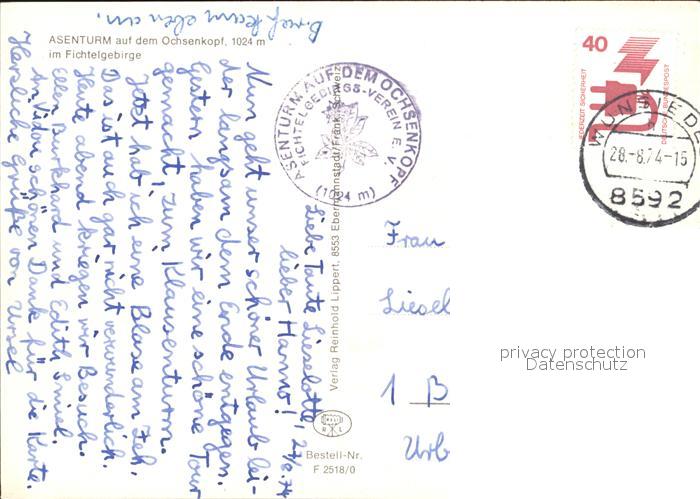 ASENTURM auf dem Ochsenkopf, 1024 m
im Fichtelgebirge
Liebe Tante Lieselotte, 27/8.74
lieber Hanno!
Nun geht unser schöner Urlaub lei-
der langsam dem Ende entgegen.
Gestern haben wir eine schöne Tour
gemacht, zum Klausenturm.
Jetzt hab ich eine Blase am Zeh.
Das ist auch gar nicht verwunderlich.
Heute abend kriegen wir Besuch.
Ellen, Burkhard und Edith
schönen Dank für die Karte.
Herzliche Grüße von Ursel
kam eben an.
ASENTURM AUF DEM OCHSENKOPF
FICHTELGEBIRGS-VEREIN E. V.
(1024 m)
Verlag Reinhold Lippert, 8553 Ebermannstadt/Fränk. Schweiz
R L
Bestell-Nr.
F 2518/0
40
JEDERZEIT SICHERHEIT
DEUTSCHE BUNDESPOST
WUNSIED
28.-8.74-15
8592
Frau
Liesel
1 B
Urb
privacy protection
Datenschutz